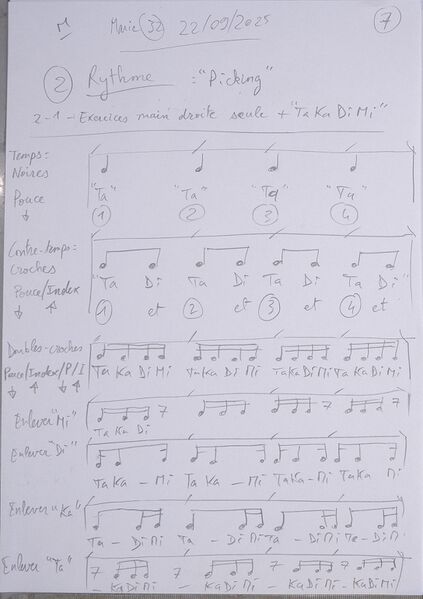 Marie 32 22/09/2025 7
2 Rythme : "Picking"
2-1 - Exercices main droite seule + "Ta Ka Di Mi"
Temps =
Noires
Pouce
↓
"Ta" "Ta" "Ta" "Ta"
1 2 3 4
Contre-temps =
Croches
Pouce/Index
↓ ↑
"Ta Di Ta Di Ta Di Ta Di"
1 et 2 et 3 et 4 et
Doubles-croches
Pouce/Index/P/I
↓ ↑ ↓ ↑
Ta Ka Di Mi Ta Ka Di Mi Ta Ka Di Mi Ta Ka Di Mi
Enlever "Mi"
Ta Ka Di
Enlever "Di"
Ta Ka - Mi Ta Ka - Mi Ta Ka - Mi Ta Ka Mi
Enlever "Ka"
Ta - Di Mi Ta - Di Mi Ta - Di Mi Ta - Di Mi
Enlever "Ta"
- Ka Di Mi - Ka Di Mi - Ka Di Mi - Ka Di Mi